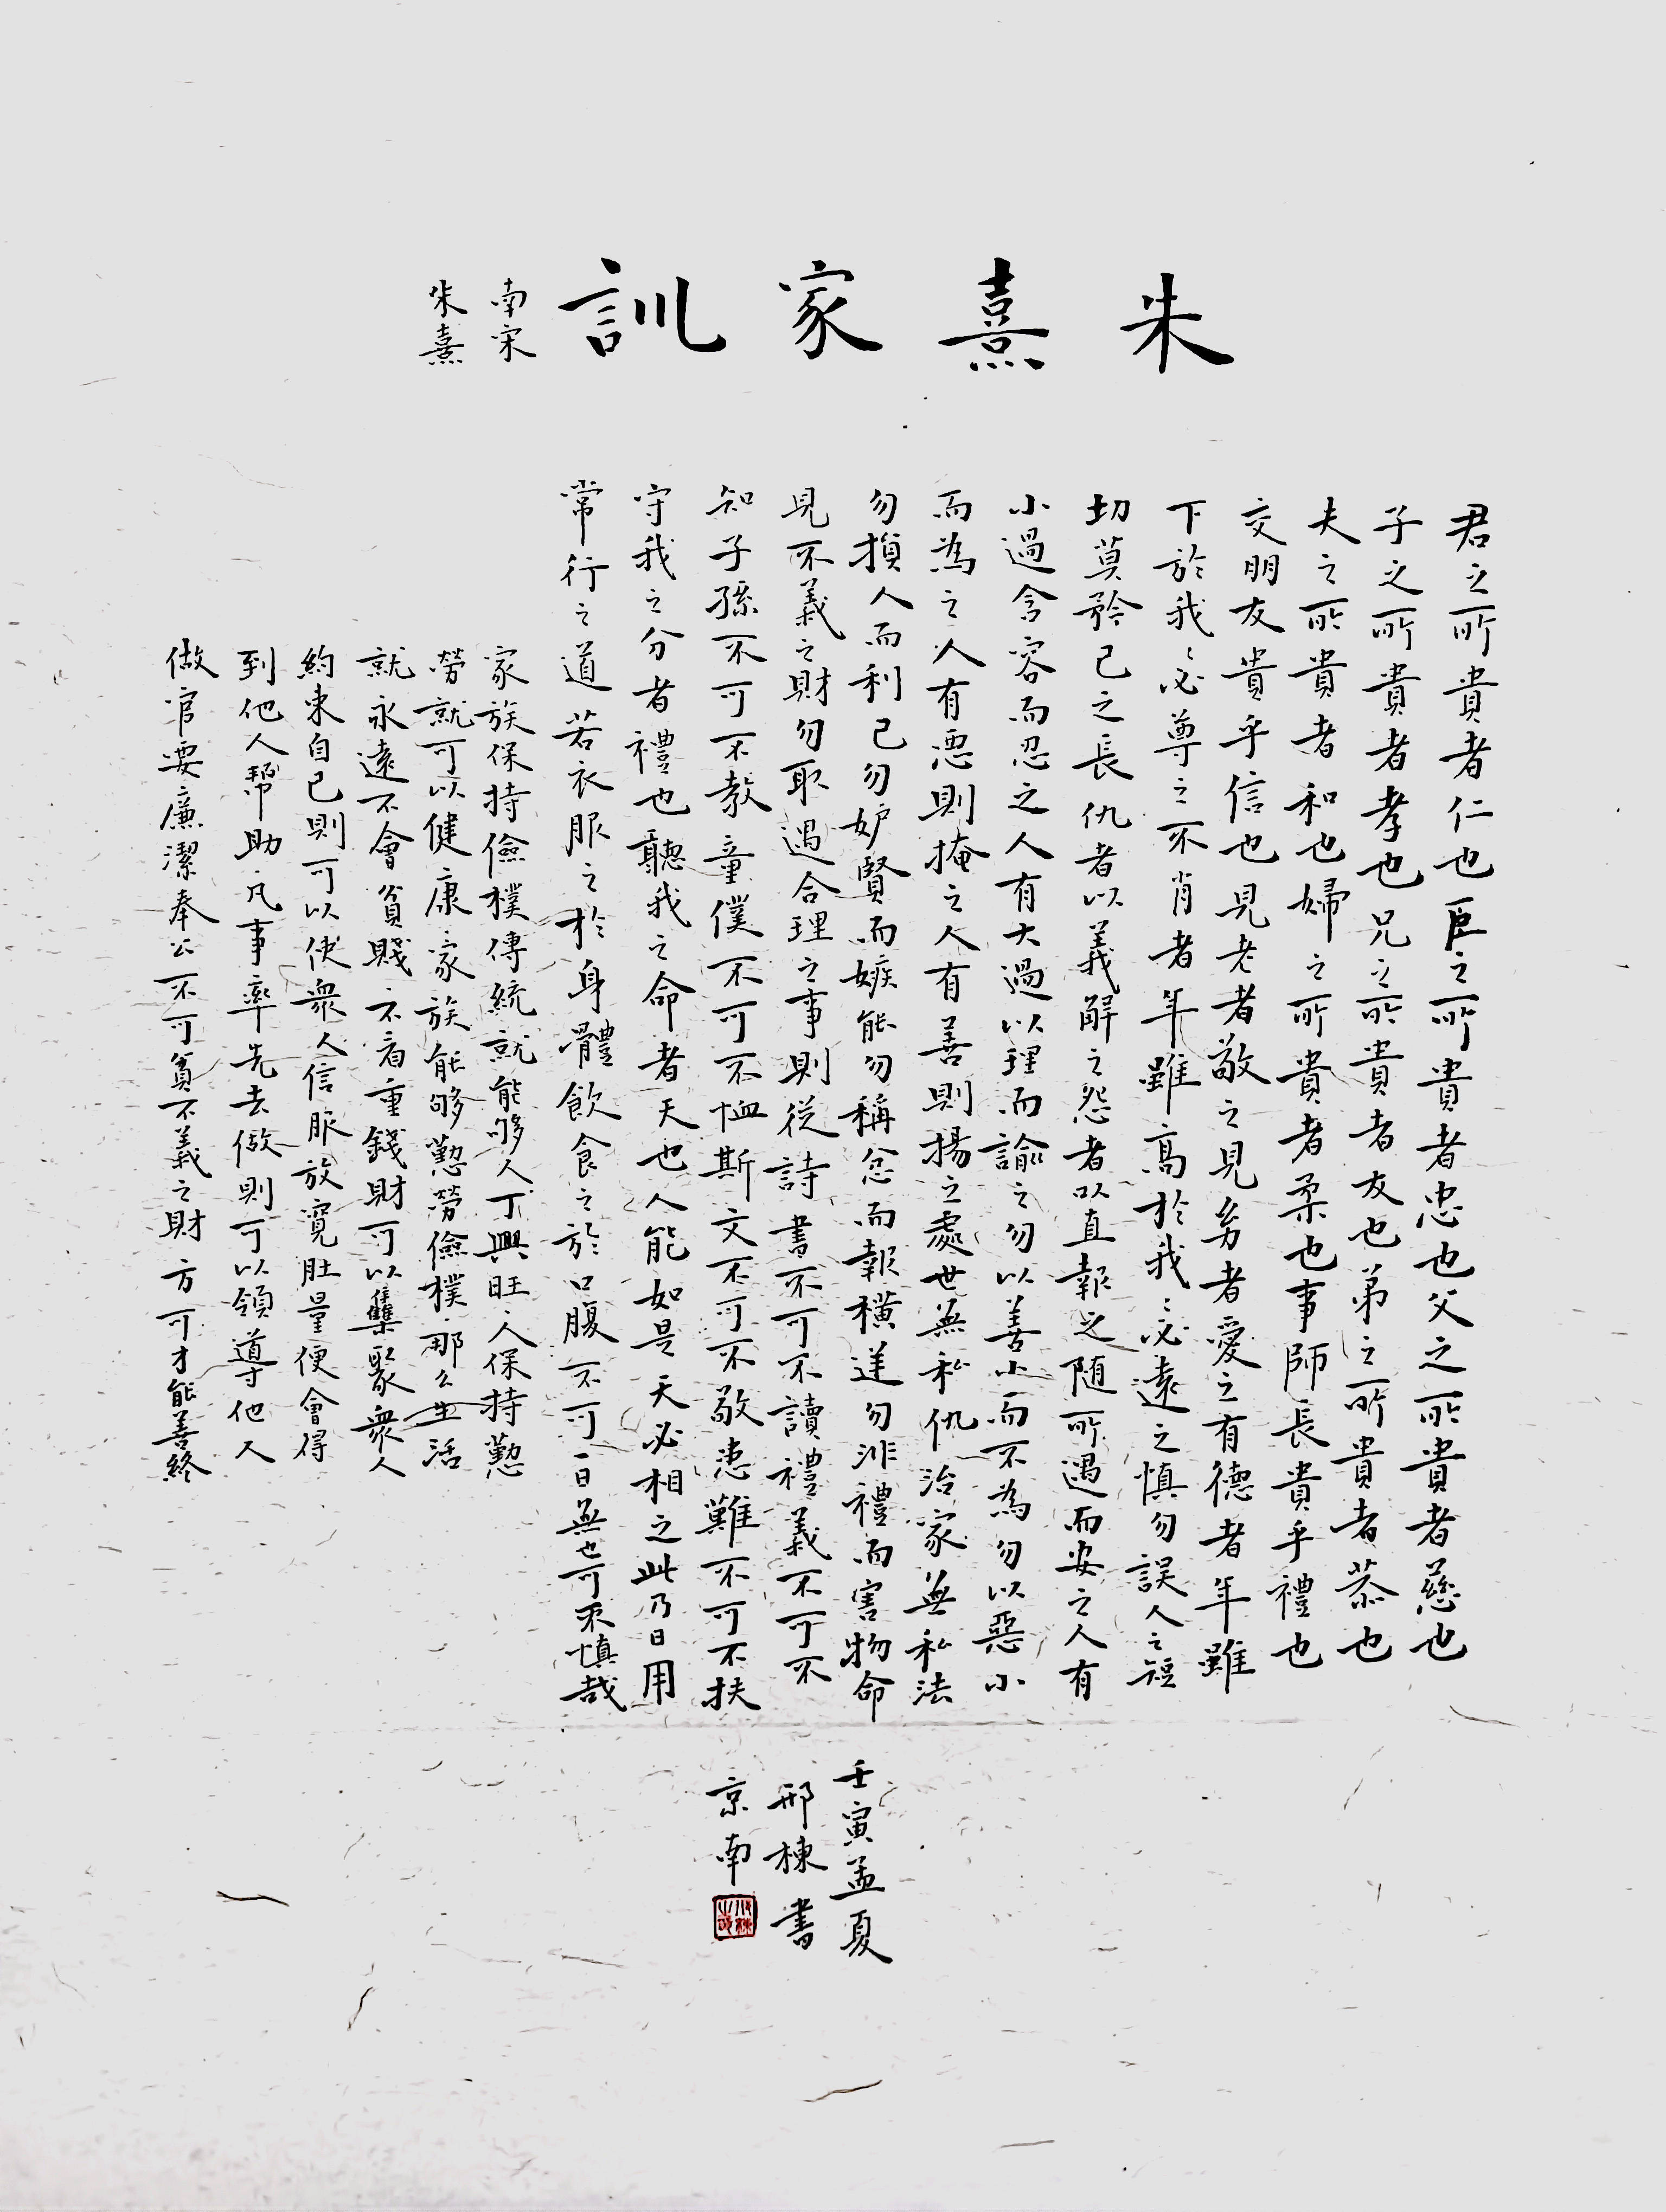 朱熹家訓
南宋
朱熹
君之所貴者仁也臣之所貴者忠也父之所貴者慈也
子之所貴者孝也兄之所貴者友也弟之所貴者恭也
夫之所貴者和也婦之所貴者柔也事師長貴乎禮也
交朋友貴乎信也見老者敬之見幼者愛之有德者年雖
下於我〻必尊之不肖者年雖高於我〻必遠之慎勿談人之短
切莫矜己之長仇者以義解之怨者以直報之随所遇而安之人有
小過含容而忍之人有大過以理而諭之勿以善小而不為勿以惡小
而為之人有惡則掩之人有善則揚之處世無私仇治家無私法
勿損人而利己勿妒賢而嫉能勿稱忿而報橫逆勿非禮而害物命
見不義之財勿取遇合理之事則從詩書不可不讀禮義不可不
知子孫不可不教童僕不可不恤斯文不可不敬患難不可不扶
守我之分者禮也聽我之命者天也人能如是天必相之此乃日用
常行之道若衣服之於身體飲食之於口腹不可一日無也可不慎哉
家族保持儉樸傳統就能够人丁興旺人保持勤
勞就可以健康家族能够勤勞儉樸那么生活
就永遠不會貧賤不看重錢財可以集聚衆人
約束自己則可以使衆人信服放寬肚量便會得
到他人幫助凡事率先去做則可以領導他人
做官要廉潔奉公不可貪不義之財方可才能善終
壬寅孟夏
邢棟書
京南